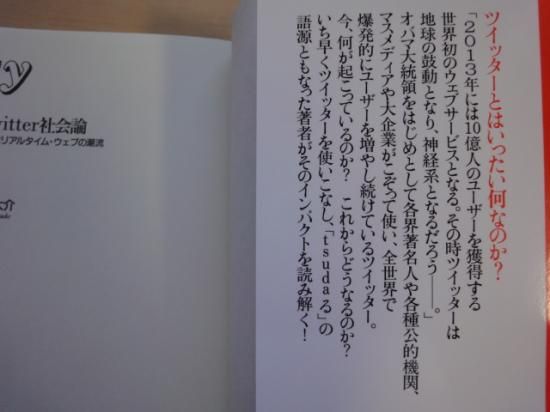 ツイッターとはいったい何なのか?
「2013年には10億人のユーザーを獲得する
世界初のウェブサービスとなる。その時ツイッターは
地球の鼓動となり、神経系となるだろう――。」
オバマ大統領をはじめとして各界著名人や各種公的機関、
マスメディアや大企業がこぞって使い、全世界で
爆発的にユーザーを増やし続けているツイッター。
今、何が起こっているのか? これからどうなるのか?
いち早くツイッターを使いこなし、「tsudaる」の
語源ともなった著者がそのインパクトを読み解く!
y
witter社会論
リアルタイム・ウェブの潮流
大介